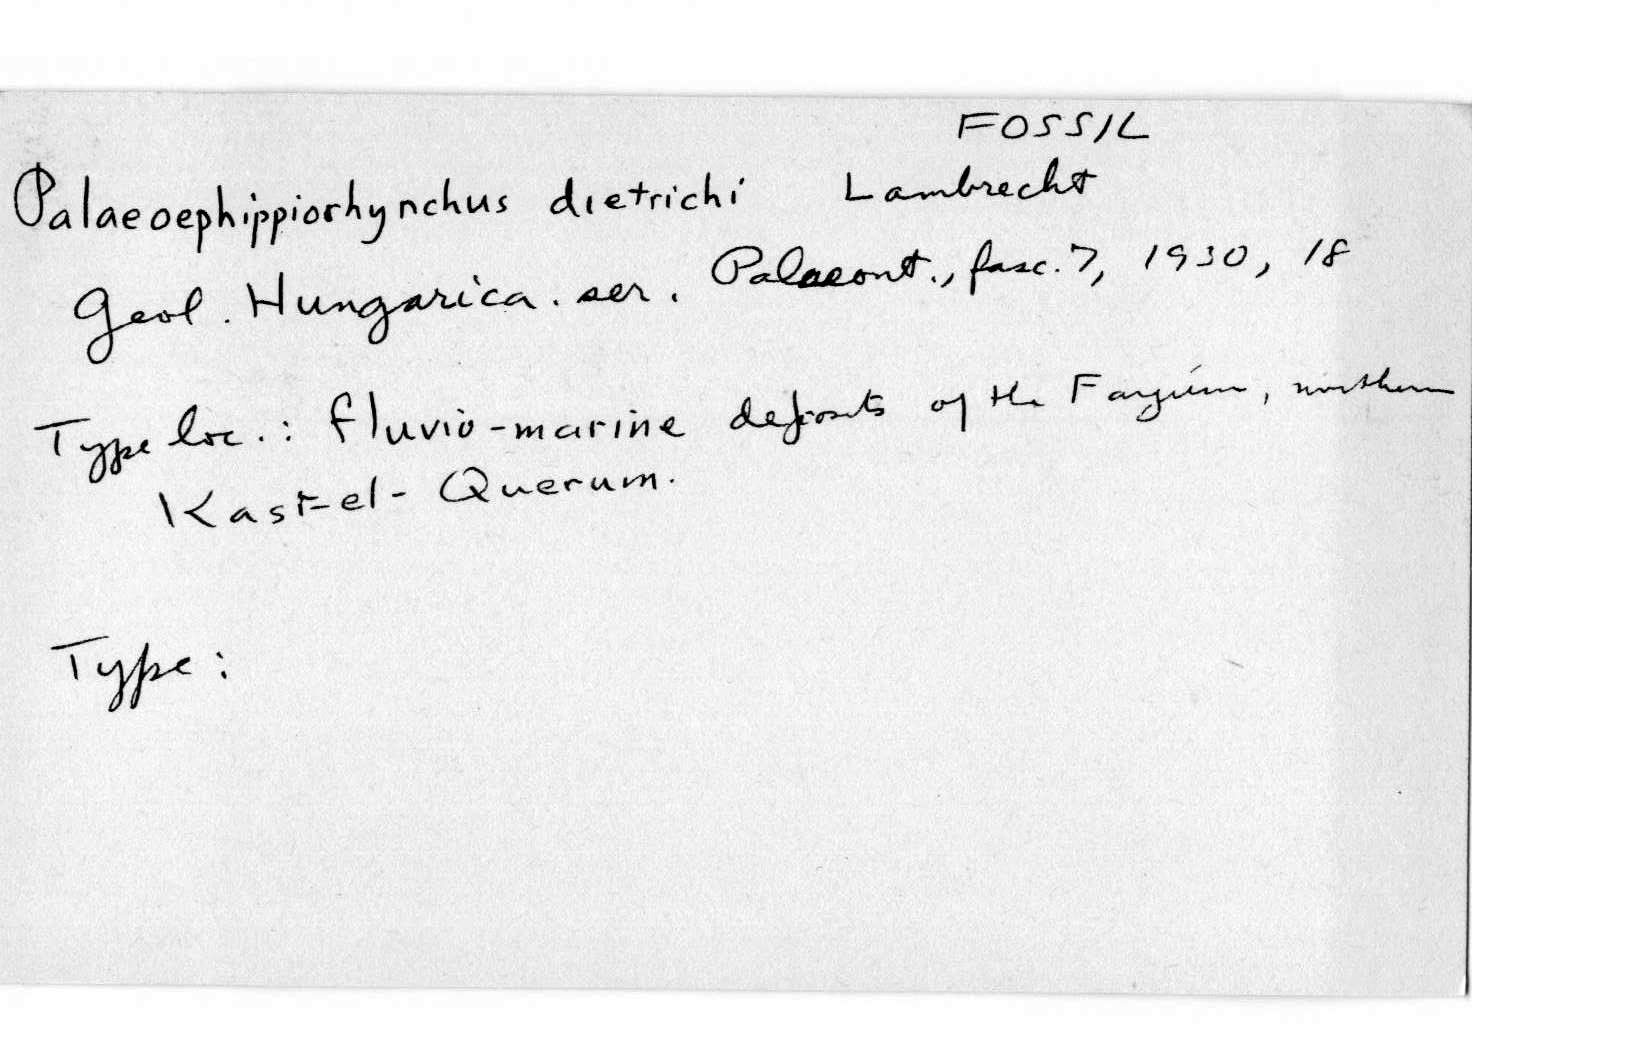 FOSSIL
Palaeoephippiorhynchus dietrichi Lambrecht
Geol. Hungarica. ser. Palaeont., fasc. 7, 1930, 18
Type loc.: fluvio-marine deposits of the Fayúm, northern
Kasr-el-Querum.
Type: